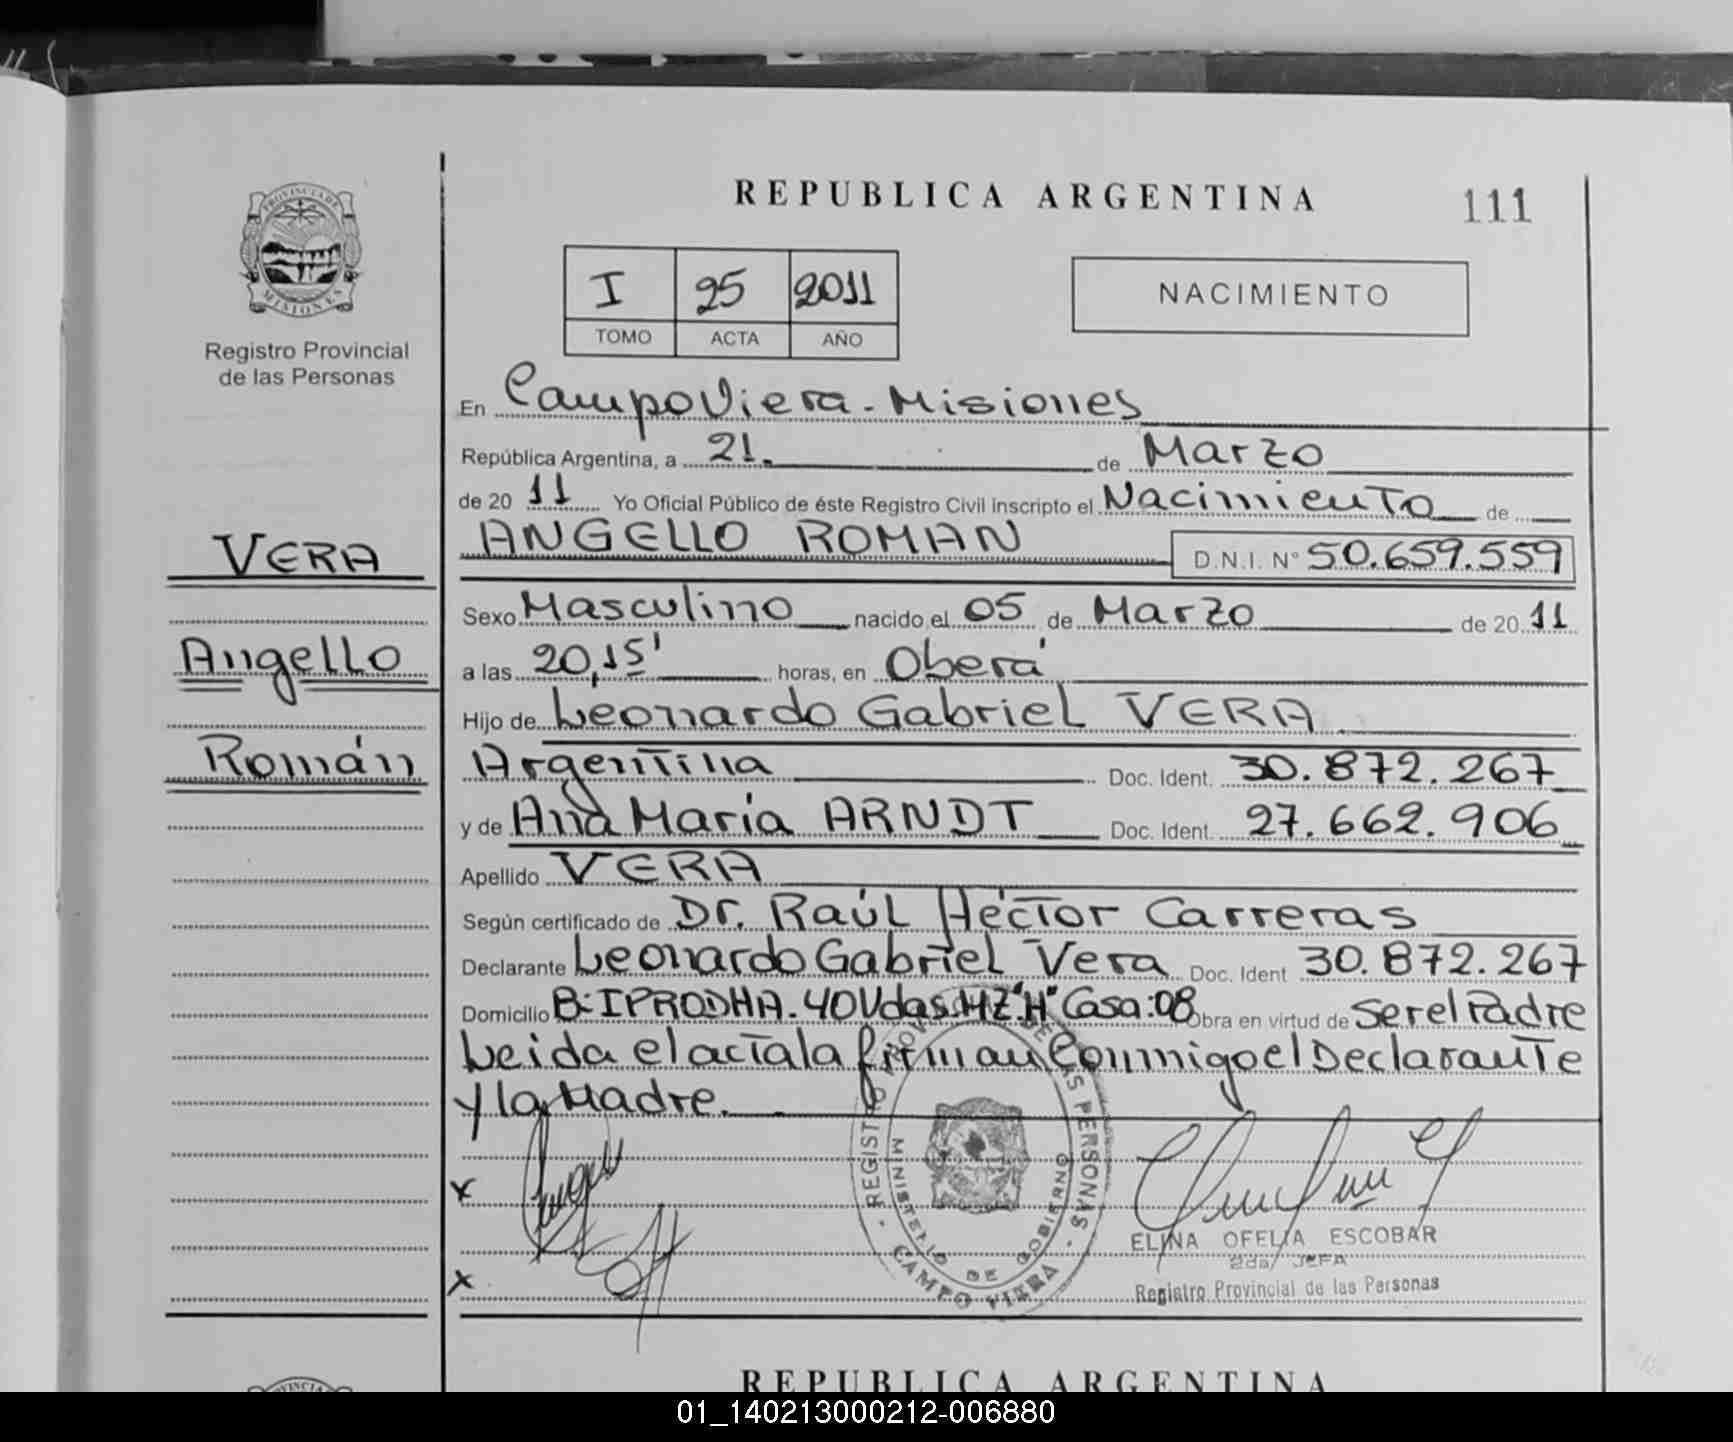 PROVINCIA DE
MISIONES
Registro Provincial
de las Personas
VERA
Angello
Román
REPUBLICA ARGENTINA
111
I 25 2011
TOMO ACTA AÑO
NACIMIENTO
En Campo Viera - Misiones
República Argentina, a 21. de Marzo
de 20 11 Yo Oficial Público de éste Registro Civil Inscripto el Nacimiento de
ANGELLO ROMAN D.N.I. N° 50.659.559
Sexo Masculino nacido el 05 de Marzo de 20 11
a las 20,15' horas, en Oberá
Hijo de Leonardo Gabriel VERA
Argentina Doc. Ident. 30.872.267
y de Ana María ARNDT Doc. Ident. 27.662.906
Apellido VERA
Según certificado de Dr. Raúl Héctor Carreras
Declarante Leonardo Gabriel Vera Doc. Ident 30.872.267
Domicilio B: IPRODHA. 40 Vdas. MZ "H" Casa: 08 Obra en virtud de Ser el Padre
Leida el acta la firman Conmigo el Declarante
y la Madre.
REGISTRO PROV DE LAS PERSONAS
MINISTERIO DE GOBIERNO
- CAMPO VIERA -
x
x
ELINA OFELIA ESCOBAR
2da JEFA
Registro Provincial de las Personas
PROVINCIA
REPUBLICA ARGENTINA
01_140213000212-006880